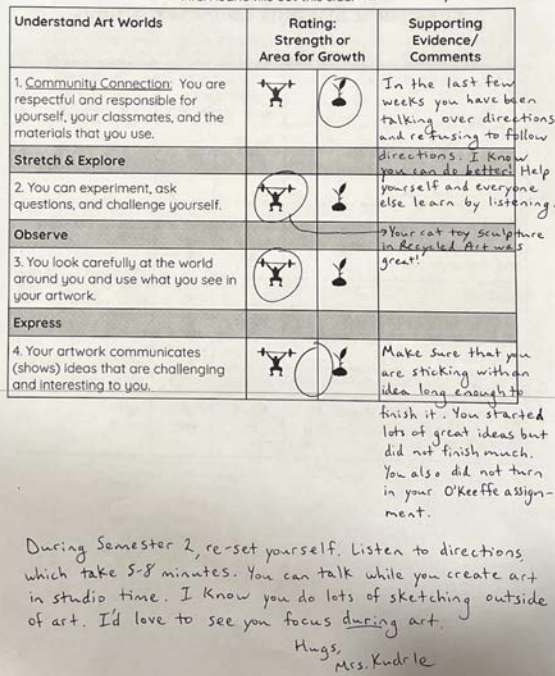 Understand Art Worlds
Rating:
Strength or
Area for Growth
Supporting
Evidence/
Comments
1. Community Connection: You are
respectful and responsible for
yourself, your classmates, and the
materials that you use.
In the last few
weeks you have been
talking over directions
and refusing to follow
directions. I know
you can do better! Help
yourself and everyone
else learn by listening.
Stretch & Explore
2. You can experiment, ask
questions, and challenge yourself.
Your cat toy sculpture
in Recycled Art was
great!
Observe
3. You look carefully at the world
around you and use what you see in
your artwork.
Express
4. Your artwork communicates
(shows) ideas that are challenging
and interesting to you.
Make sure that you
are sticking with an
idea long enough to
finish it. You started
lots of great ideas but
did not finish much.
You also did not turn
in your O'Keeffe assign-
ment.
During Semester 2, re-set yourself. Listen to directions,
which take 5-8 minutes. You can talk while you create art
in studio time. I know you do lots of sketching outside
of art. I'd love to see you focus during art.
Hugs,
Mrs. Kudrle